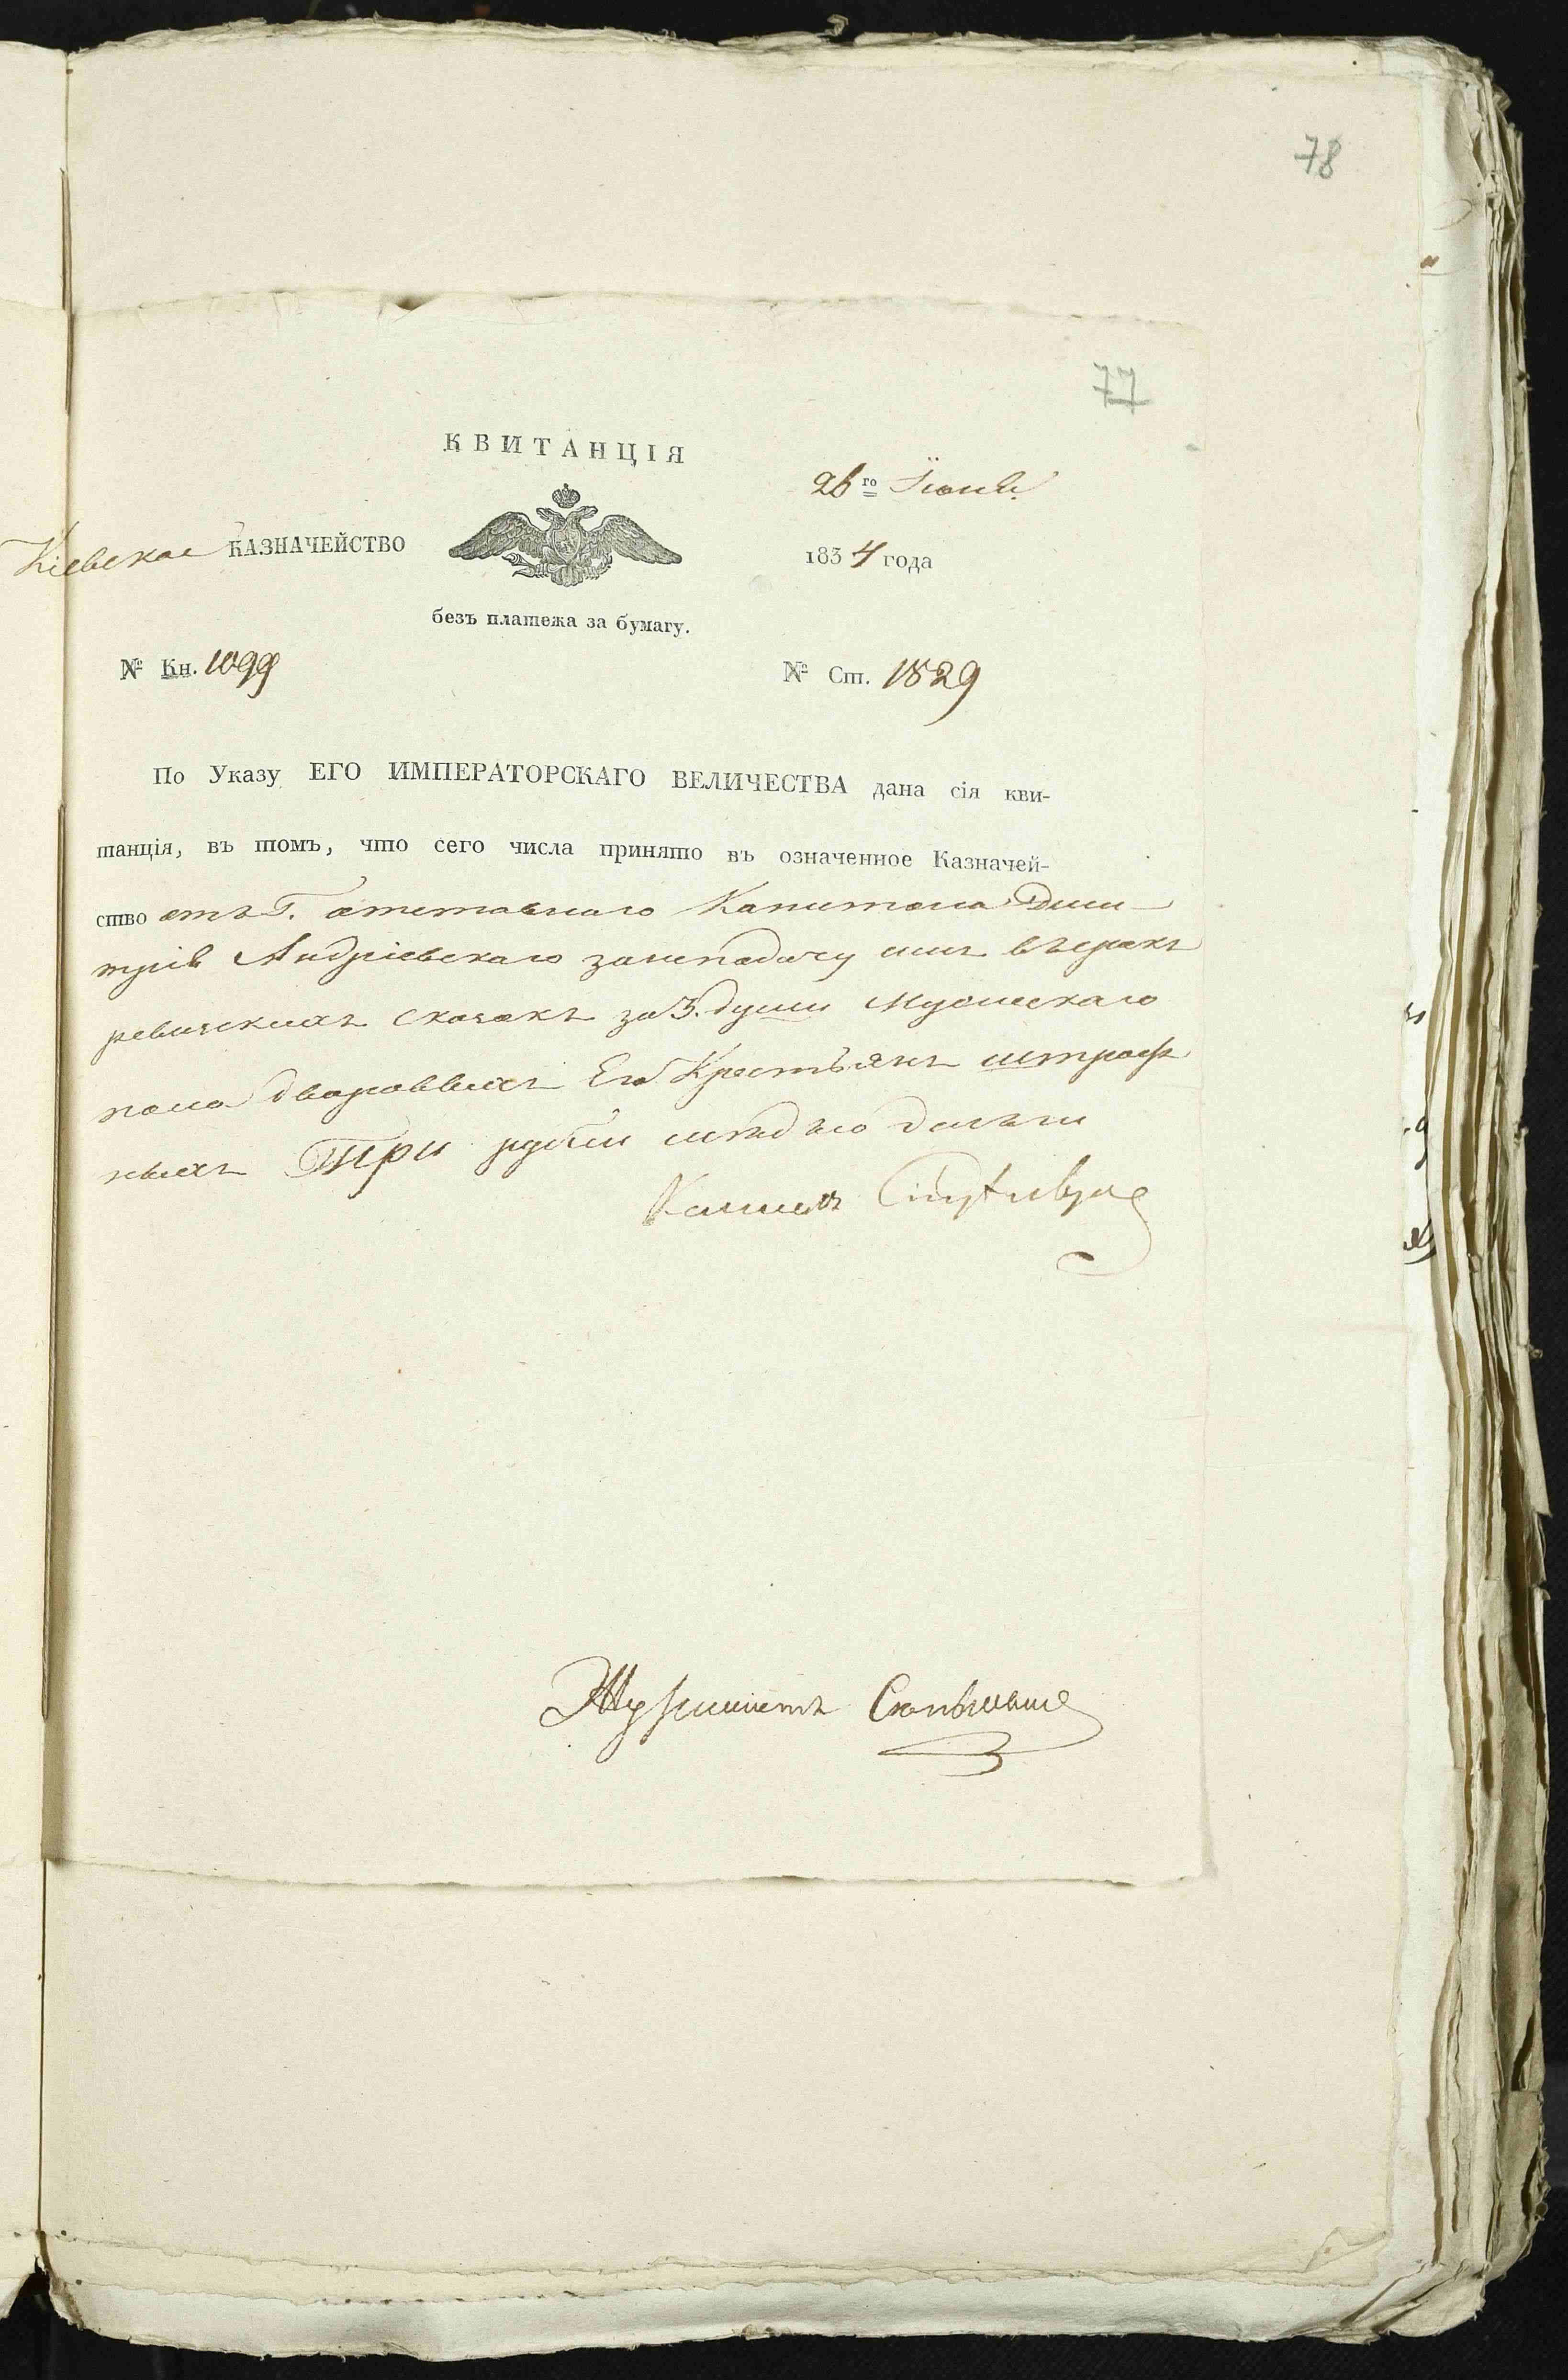 78
77
КВИТАНЦІЯ
26го Іюня
Кіевское КАЗНАЧЕЙСТВО
1834 года
безъ платежа за бумагу.
№ Кн. 1099
№ Ст. 1829
По Указу ЕГО ИМПЕРАТОРСКАГО ВЕЛИЧЕСТВА дана сія кви-
танція, въ томъ, что сего числа принято въ означенное Казначей-
ство отъ Г. отставнаго Капитана Дми-
трія Андріевскаго занеподачу имъ въсрокъ
ревизскихъ сказокъ за 3. души мужескаго
пола дворовыхъ Его Крестьянъ штраф
ныхъ Три рубли мѣдью деньги
Журналистъ